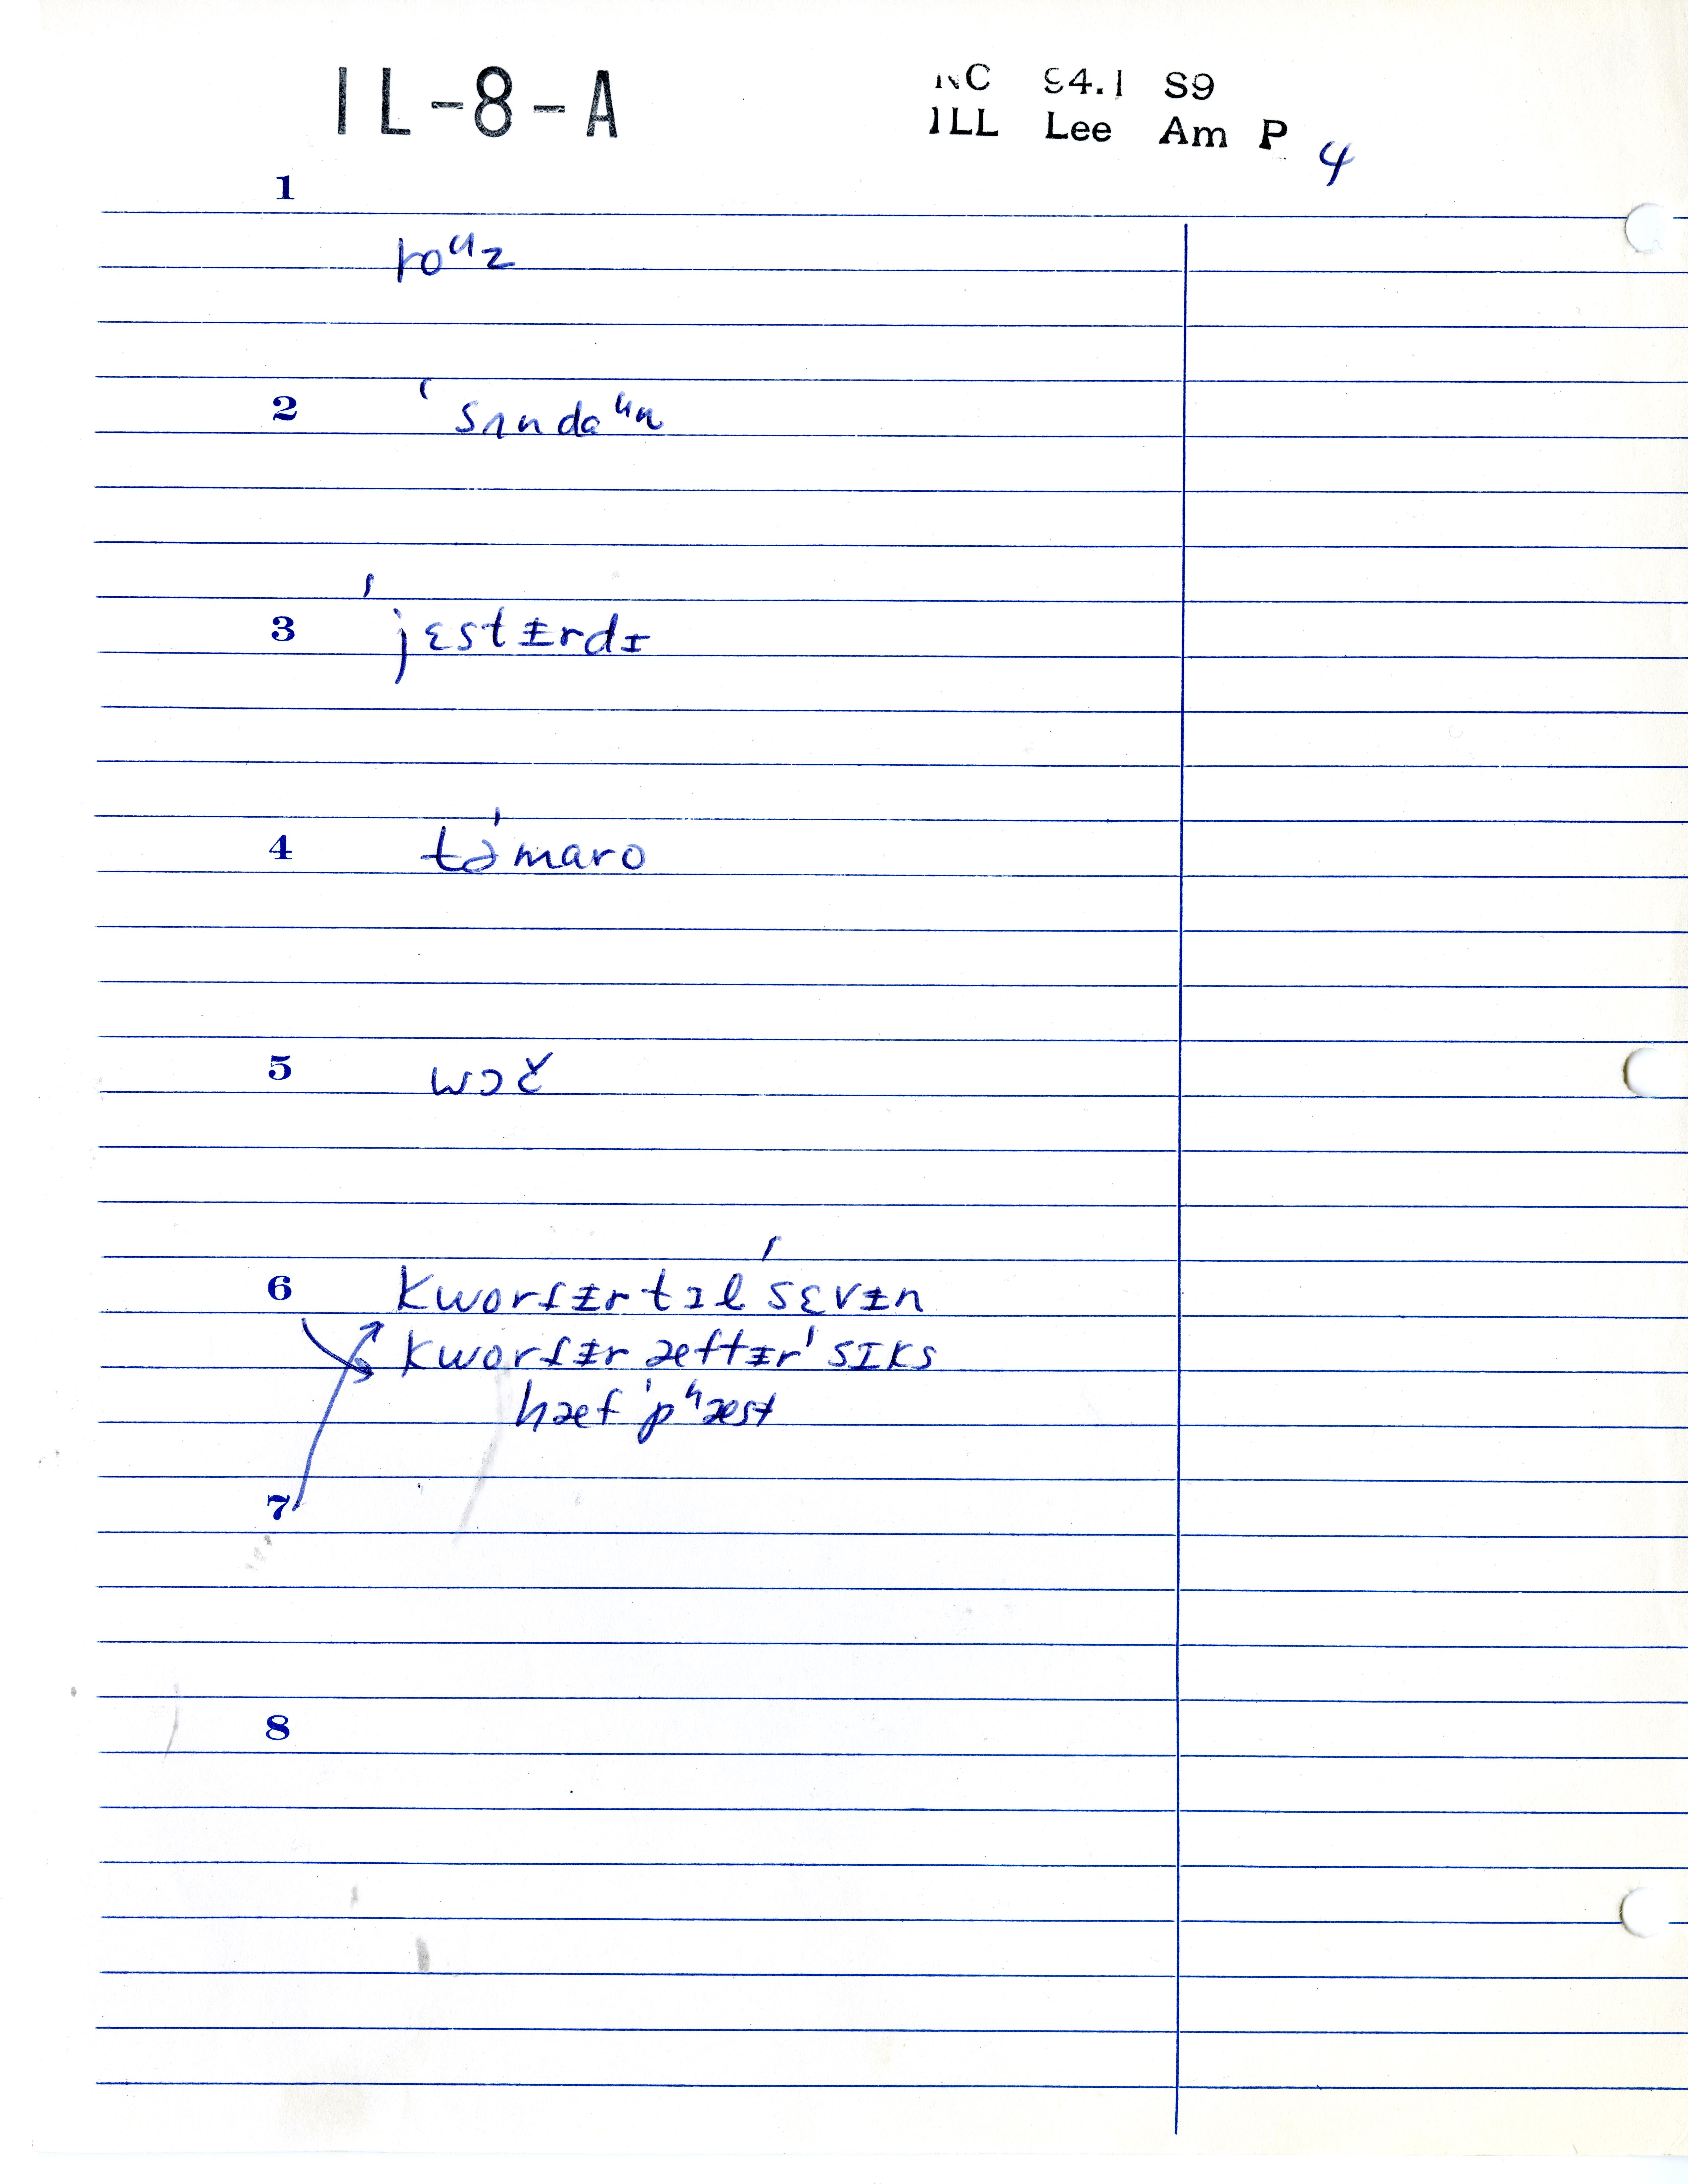 IL-8-A
NC 94.1 S9
ILL Lee Am P 4
1
roᵘz
2 ˈsʌndaᵘn
3 ˈjɛstᵻrdɪ
4 təˈmaro
5 wɔč
6 kwɔrɾᵻr tɪl ˈsɛvᵻn
kwɔrɾᵻr æftᵻr ˈsɪks
hæf ˈpʰæst
7
8